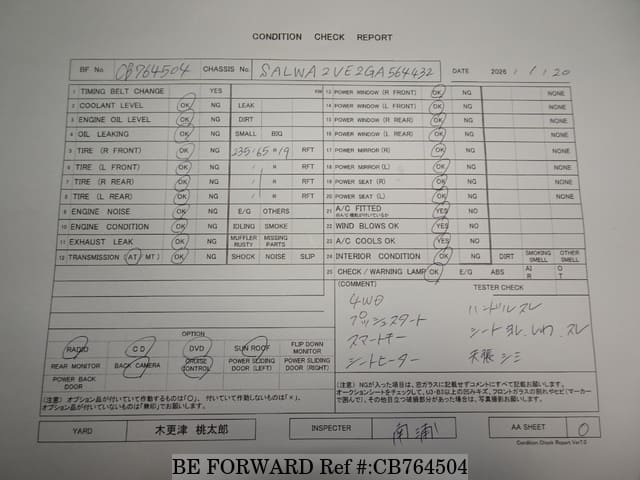 CONDITION CHECK REPORT
BF No. CB764504 CHASSIS No. SALWA2VE2GA564432 DATE 2026 / 1 / 20
1 TIMING BELT CHANGE YES KM
2 COOLANT LEVEL OK NG LEAK
3 ENGINE OIL LEVEL OK NG DIRT
4 OIL LEAKING OK NG SMALL BIG
5 TIRE (R FRONT) OK NG 235/65 R 19 RFT
6 TIRE (L FRONT) OK NG R RFT
7 TIRE (R REAR) OK NG R RFT
8 TIRE (L REAR) OK NG R RFT
9 ENGINE NOISE OK NG E/G OTHERS
10 ENGINE CONDITION OK NG IDLING SMOKE
11 EXHAUST LEAK OK NG MUFFLER RUSTY MISSING PARTS
12 TRANSMISSION (AT MT) OK NG SHOCK NOISE SLIP
13 POWER WINDOW (R FRONT) OK NG NONE
14 POWER WINDOW (L FRONT) OK NG NONE
15 POWER WINDOW (R REAR) OK NG NONE
16 POWER WINDOW (L REAR) OK NG NONE
17 POWER MIRROR (R) OK NG NONE
18 POWER MIRROR (L) OK NG NONE
19 POWER SEAT (R) OK NG NONE
20 POWER SEAT (L) OK NG NONE
21 A/C FITTED YES NO
22 WIND BLOWS OK YES NO
23 A/C COOLS OK YES NO
24 INTERIOR CONDITION OK NG DIRT SMOKING SMELL OTHER SMELL
25 CHECK / WARNING LAMP OK E/G ABS AIR OT
(COMMENT) TESTER CHECK
4WD
プッシュスタート
スマートキー
シートヒーター
ハンドルスレ
シートヨレ、しわ、スレ
天張シミ
OPTION
RADIO CD DVD SUN ROOF FLIP DOWN MONITOR
REAR MONITOR BACK CAMERA CRUISE CONTROL POWER SLIDING DOOR (LEFT) POWER SLIDING DOOR (RIGHT)
POWER BACK DOOR
(注意) オプション品が付いていて作動するものは「○」、付いていて作動しないものは「×」、
オプション品が付いていないものは「無印」でお願いします。
(注意) NGが入った項目は、窓ガラスに記載せずコメントにすべて記載お願いします。
YARD 木更津 桃太郎 INSPECTER 南浦 AA SHEET 0
Condition Check Report Ver7.0
BE FORWARD Ref #:CB764504